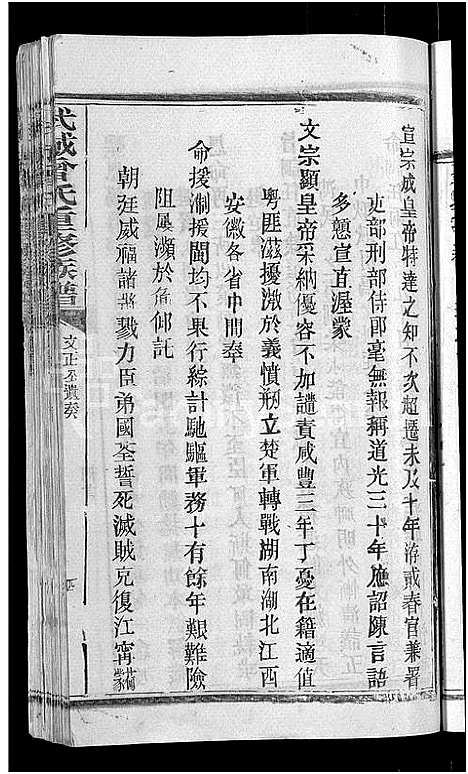 宣宗成皇帝特達之知不次超遷未及十年洊貳春官兼署
吏部刑部侍郎毫無報稱道光三十年應詔陳言語
多戇宣直渥蒙
文宗顯皇帝采納優容不加譴責咸豐三年丁憂在籍適值
粵匪滋擾激於義憤剏立楚軍轉戰湖南湖北江西
安徽各省中間奉
命援淛援閩均不果行綜計馳驅軍務十有餘年艱難險
阻屢瀕於危仰託
朝廷威福諸將戮力臣弟國荃誓死滅賊克復江寧
武城曾氏重修族譜
文正公遺奏